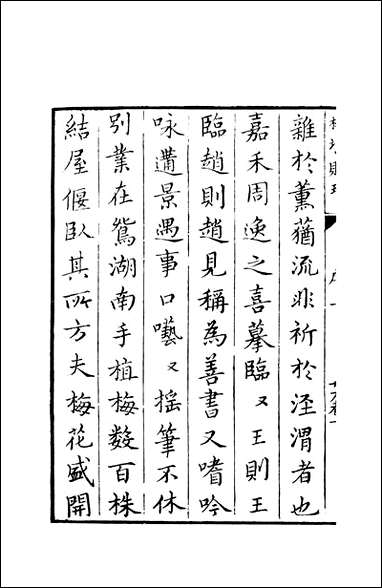 雜於薰蕕流非祈於涇渭者也
嘉禾周逸之喜摹臨〻王則王
臨趙則趙見稱為善書又嗜吟
咏遘景遇事口囈〻搖筆不休
别業在鴛湖南手植梅數百株
結屋偃臥其所方夫梅花盛開